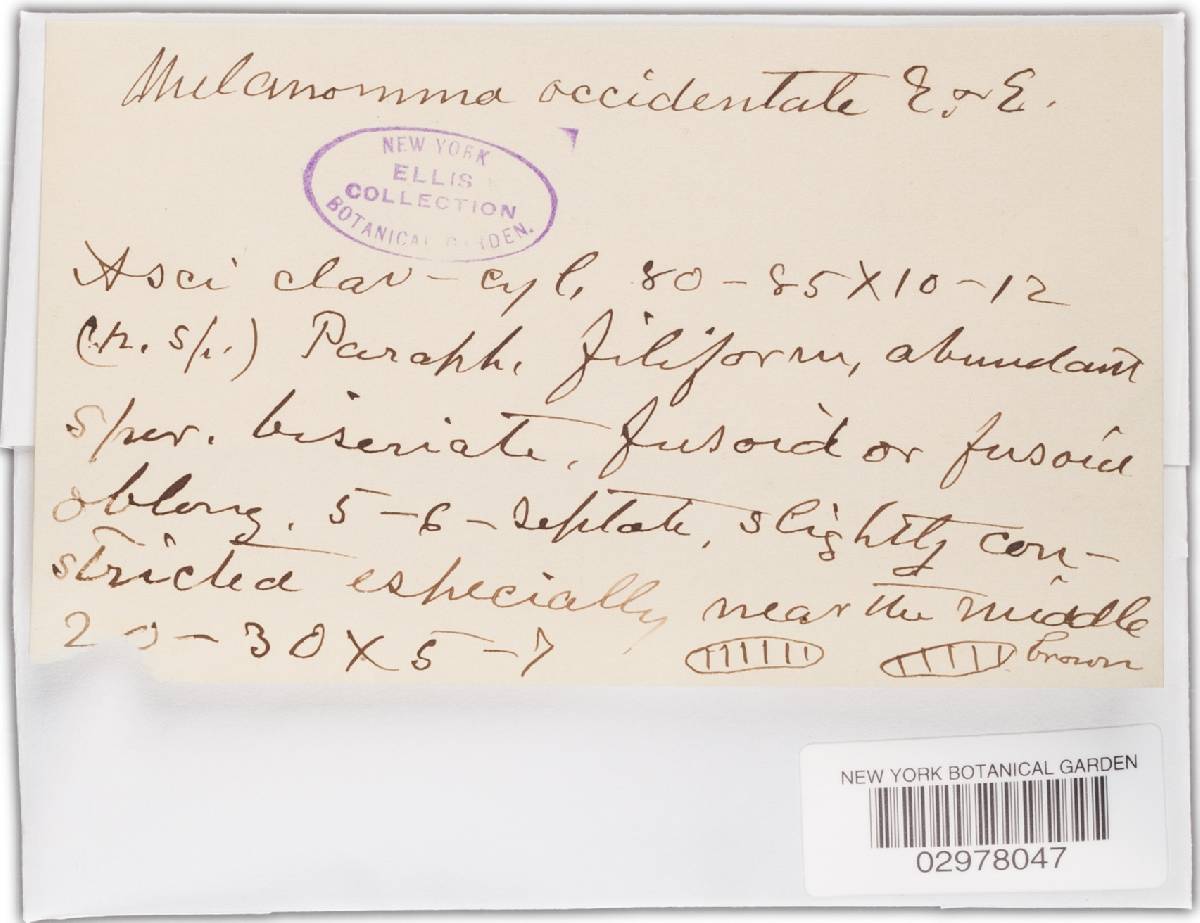 Melanomma occidentale E & E.
NEW YORK
ELLIS
COLLECTION
BOTANICAL GARDEN.
Asci clav-cyl, 80-85X10-12
(n. sp.) Paraph. filiform, abundant
Spor. biseriate, fusoid or fusoid
oblong. 5-6-septate, slightly con-
stricted especially near the middle
20-30X5-7 brown
NEW YORK BOTANICAL GARDEN
02978047